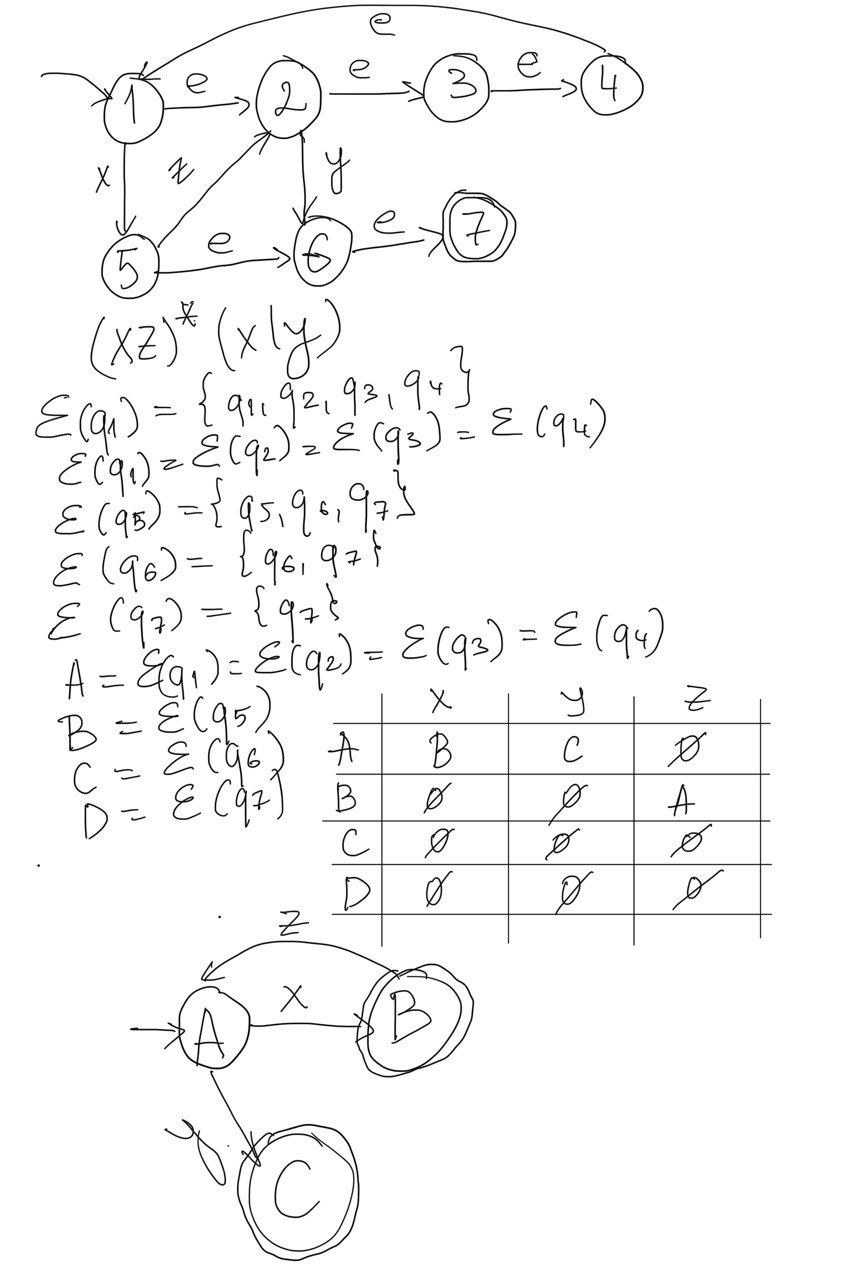 e
1 e 2 e 3 e 4
x z y
5 e 6 e 7
(xz)* (x|y)
Ɛ(q1) = {q1, q2, q3, q4}
Ɛ(q1) = Ɛ(q2) = Ɛ(q3) = Ɛ(q4)
Ɛ(q5) = {q5, q6, q7}
Ɛ(q6) = {q6, q7}
Ɛ(q7) = {q7}
A = Ɛ(q1) = Ɛ(q2) = Ɛ(q3) = Ɛ(q4)
B = Ɛ(q5)
C = Ɛ(q6)
D = Ɛ(q7)
x y z
A B C ∅
B ∅ ∅ A
C ∅ ∅ ∅
D ∅ ∅ ∅
z
A x B
y
C